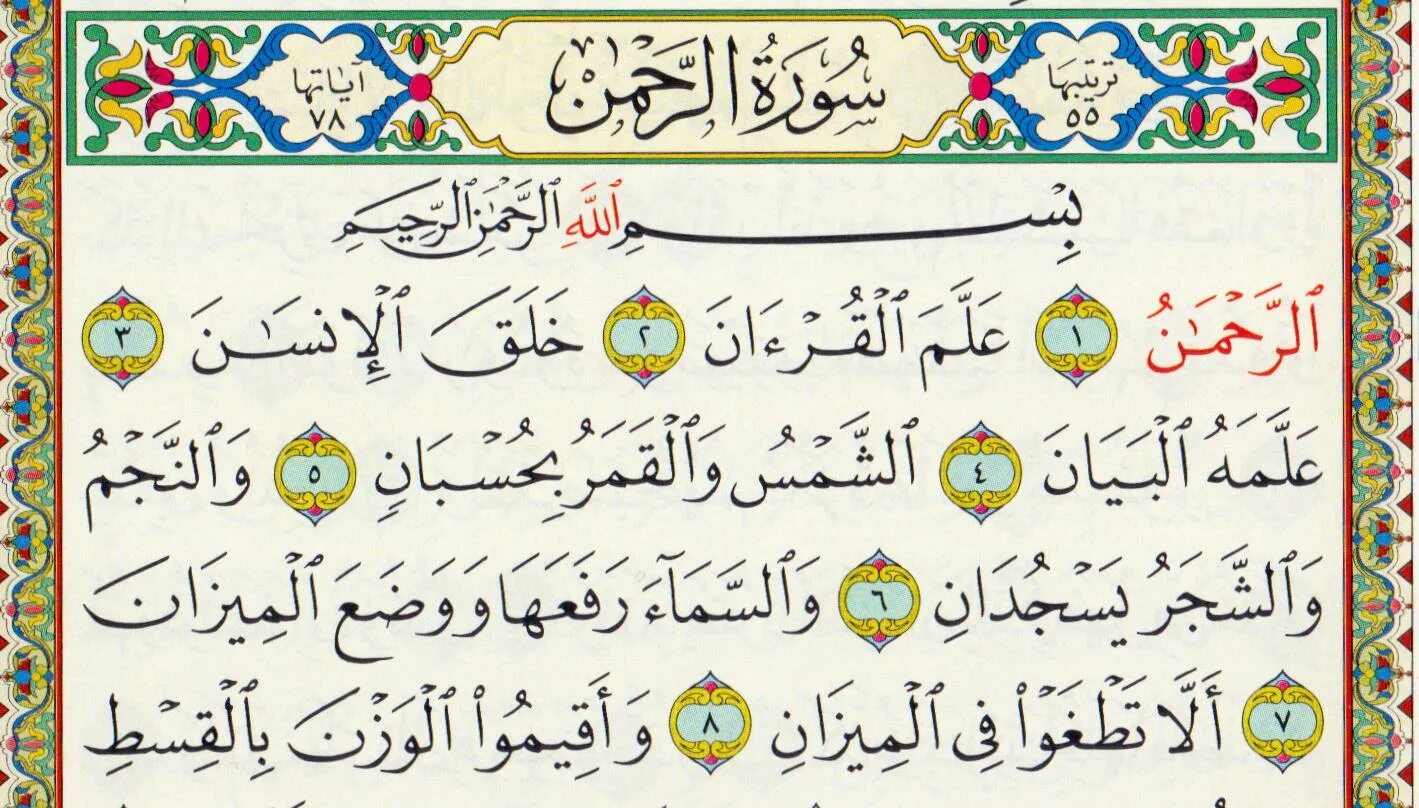 ترتيبها ٥٥ سُورَةُ الرَّحْمٰن آيَاتها ٧٨
بِسْمِ ٱللَّهِ ٱلرَّحْمَٰنِ ٱلرَّحِيمِ
ٱلرَّحْمَٰنُ ١ عَلَّمَ ٱلْقُرْءَانَ ٢ خَلَقَ ٱلْإِنسَٰنَ ٣
عَلَّمَهُ ٱلْبَيَانَ ٤ ٱلشَّمْسُ وَٱلْقَمَرُ بِحُسْبَانٍ ٥ وَٱلنَّجْمُ
وَٱلشَّجَرُ يَسْجُدَانِ ٦ وَٱلسَّمَآءَ رَفَعَهَا وَوَضَعَ ٱلْمِيزَانَ
٧ أَلَّا تَطْغَوْا۟ فِى ٱلْمِيزَانِ ٨ وَأَقِيمُوا۟ ٱلْوَزْنَ بِٱلْقِسْطِ